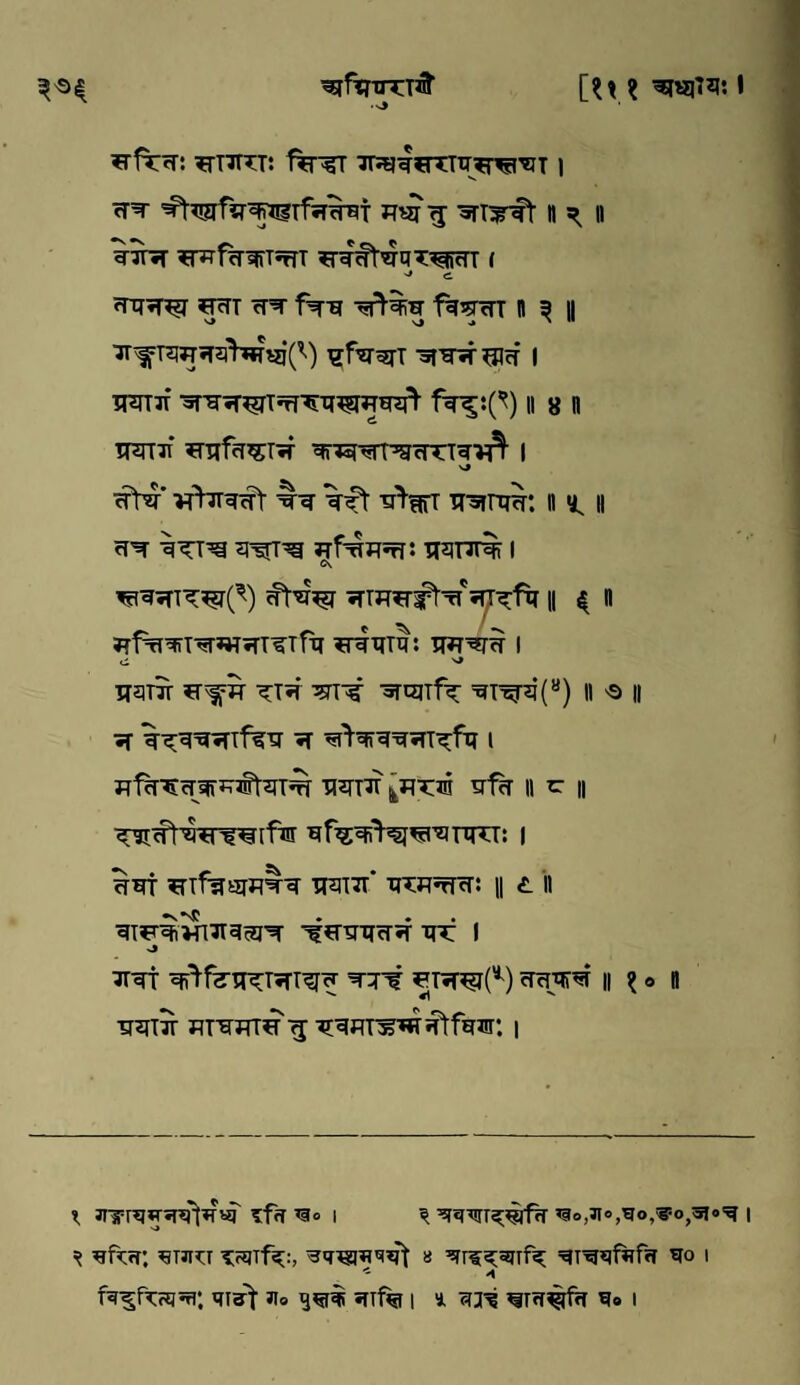 ३७६ अग्निपुराणे [१११ अध्यायः ।
सरितः सागराः सिद्धा गन्धर्व्वाप्सरसस्तथा ।
तत्र त्रीण्यग्निकुण्डानि तेषां मध्ये तु जाह्नवी ॥ २ ॥
वेगेन समतिक्रान्ता सर्व्वतीर्थपुरस्कृता ।
तपनस्य सुता तत्र त्रिषु लोकेषु विश्रुता ॥ ३ ॥
गङ्गायमुनयोर्मध्यं(१) पृथिव्या जघनं स्मृतं ।
प्रयागं जघनस्यान्तरुपस्थमृषयो विदुः(२) ॥ ४ ॥
प्रयागं सप्रतिष्ठानं कम्बलाश्वतरावुभौ ।
तीर्थं भोगवती चैव वेदी प्रोक्ता प्रजापतेः ॥ ५ ॥
तत्र वेदाश्च यज्ञाश्च मूर्त्तिमन्तः प्रयागके ।
स्तवनादस्य(३) तीर्थस्य नामसङ्कीर्त्तनादपि ॥ ६ ॥
मृत्तिकालम्भनाद्वापि सर्व्वपापैः प्रमुच्यते ।
प्रयागे सङ्गमे दानं श्राद्धं जप्यादि चाक्षयं(४) ॥ ७ ॥
न वेदवचनाद्विप्र न लोकवचनादपि ।
मतिरुत्क्रमणीयान्ते प्रयागे मरणं प्रति ॥ ८ ॥
दशतीर्थसहस्राणि षष्टिकोट्यस्तथापराः ।
तेषां सान्निध्यमत्रैव प्रयागं परमन्ततः ॥ ९ ॥
वासुकेर्भोगवत्यत्र हंसप्रपतनं परं ।
गवां कोटिप्रदानाद्यत् त्र्यहं स्नानस्य(५) तत्फलं ॥ १० ॥
प्रयागे माघमासे तु एवमाहुर्मनीषिणः ।
१ गङ्गायमुनयोर्मध्ये इति ख० । ३ श्रवणादस्येति ख०,ग०,घ०,ङ०,छ०च ।
२ सरितः सागरा इत्यादिः, उपस्थमृषयो ४ श्राद्धजप्यादि चाक्षयमिति घ० ।
विदुरित्यन्तः पाठो ग० पुस्तके नास्ति । ५ त्र्यहं स्नातस्येति घ० ।